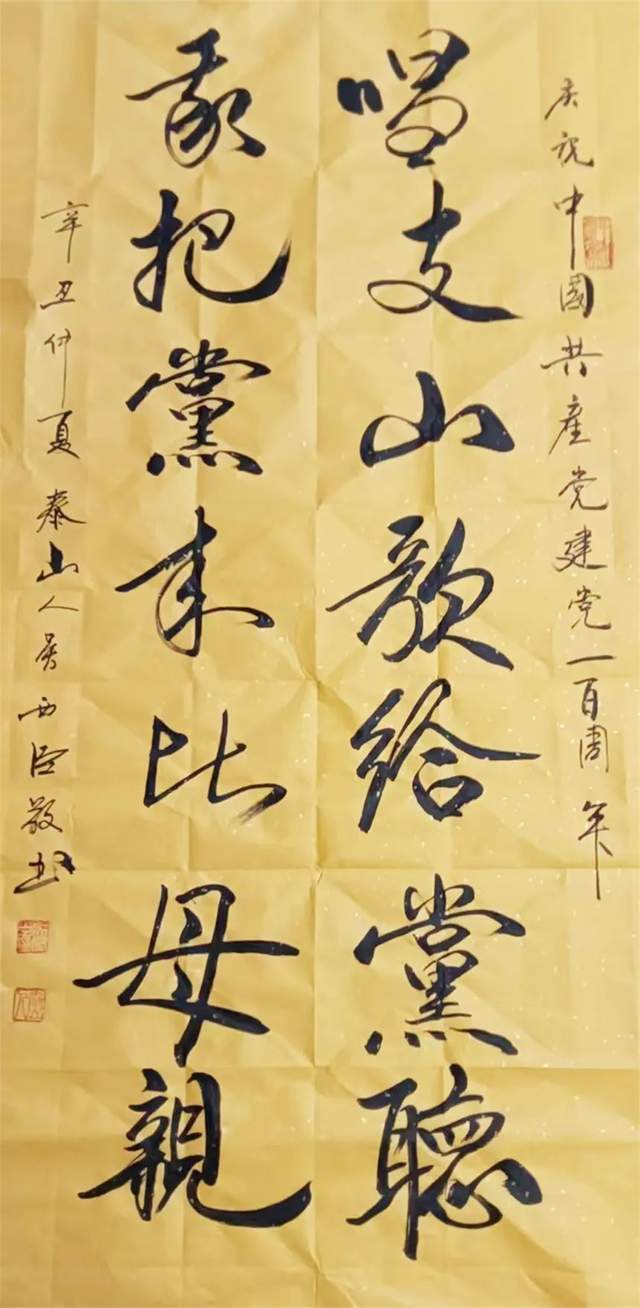 庆祝中国共産党建党一百周年
唱支山歌给黨聽
我把黨来比母親
辛丑仲夏泰山人吴西臣敬书